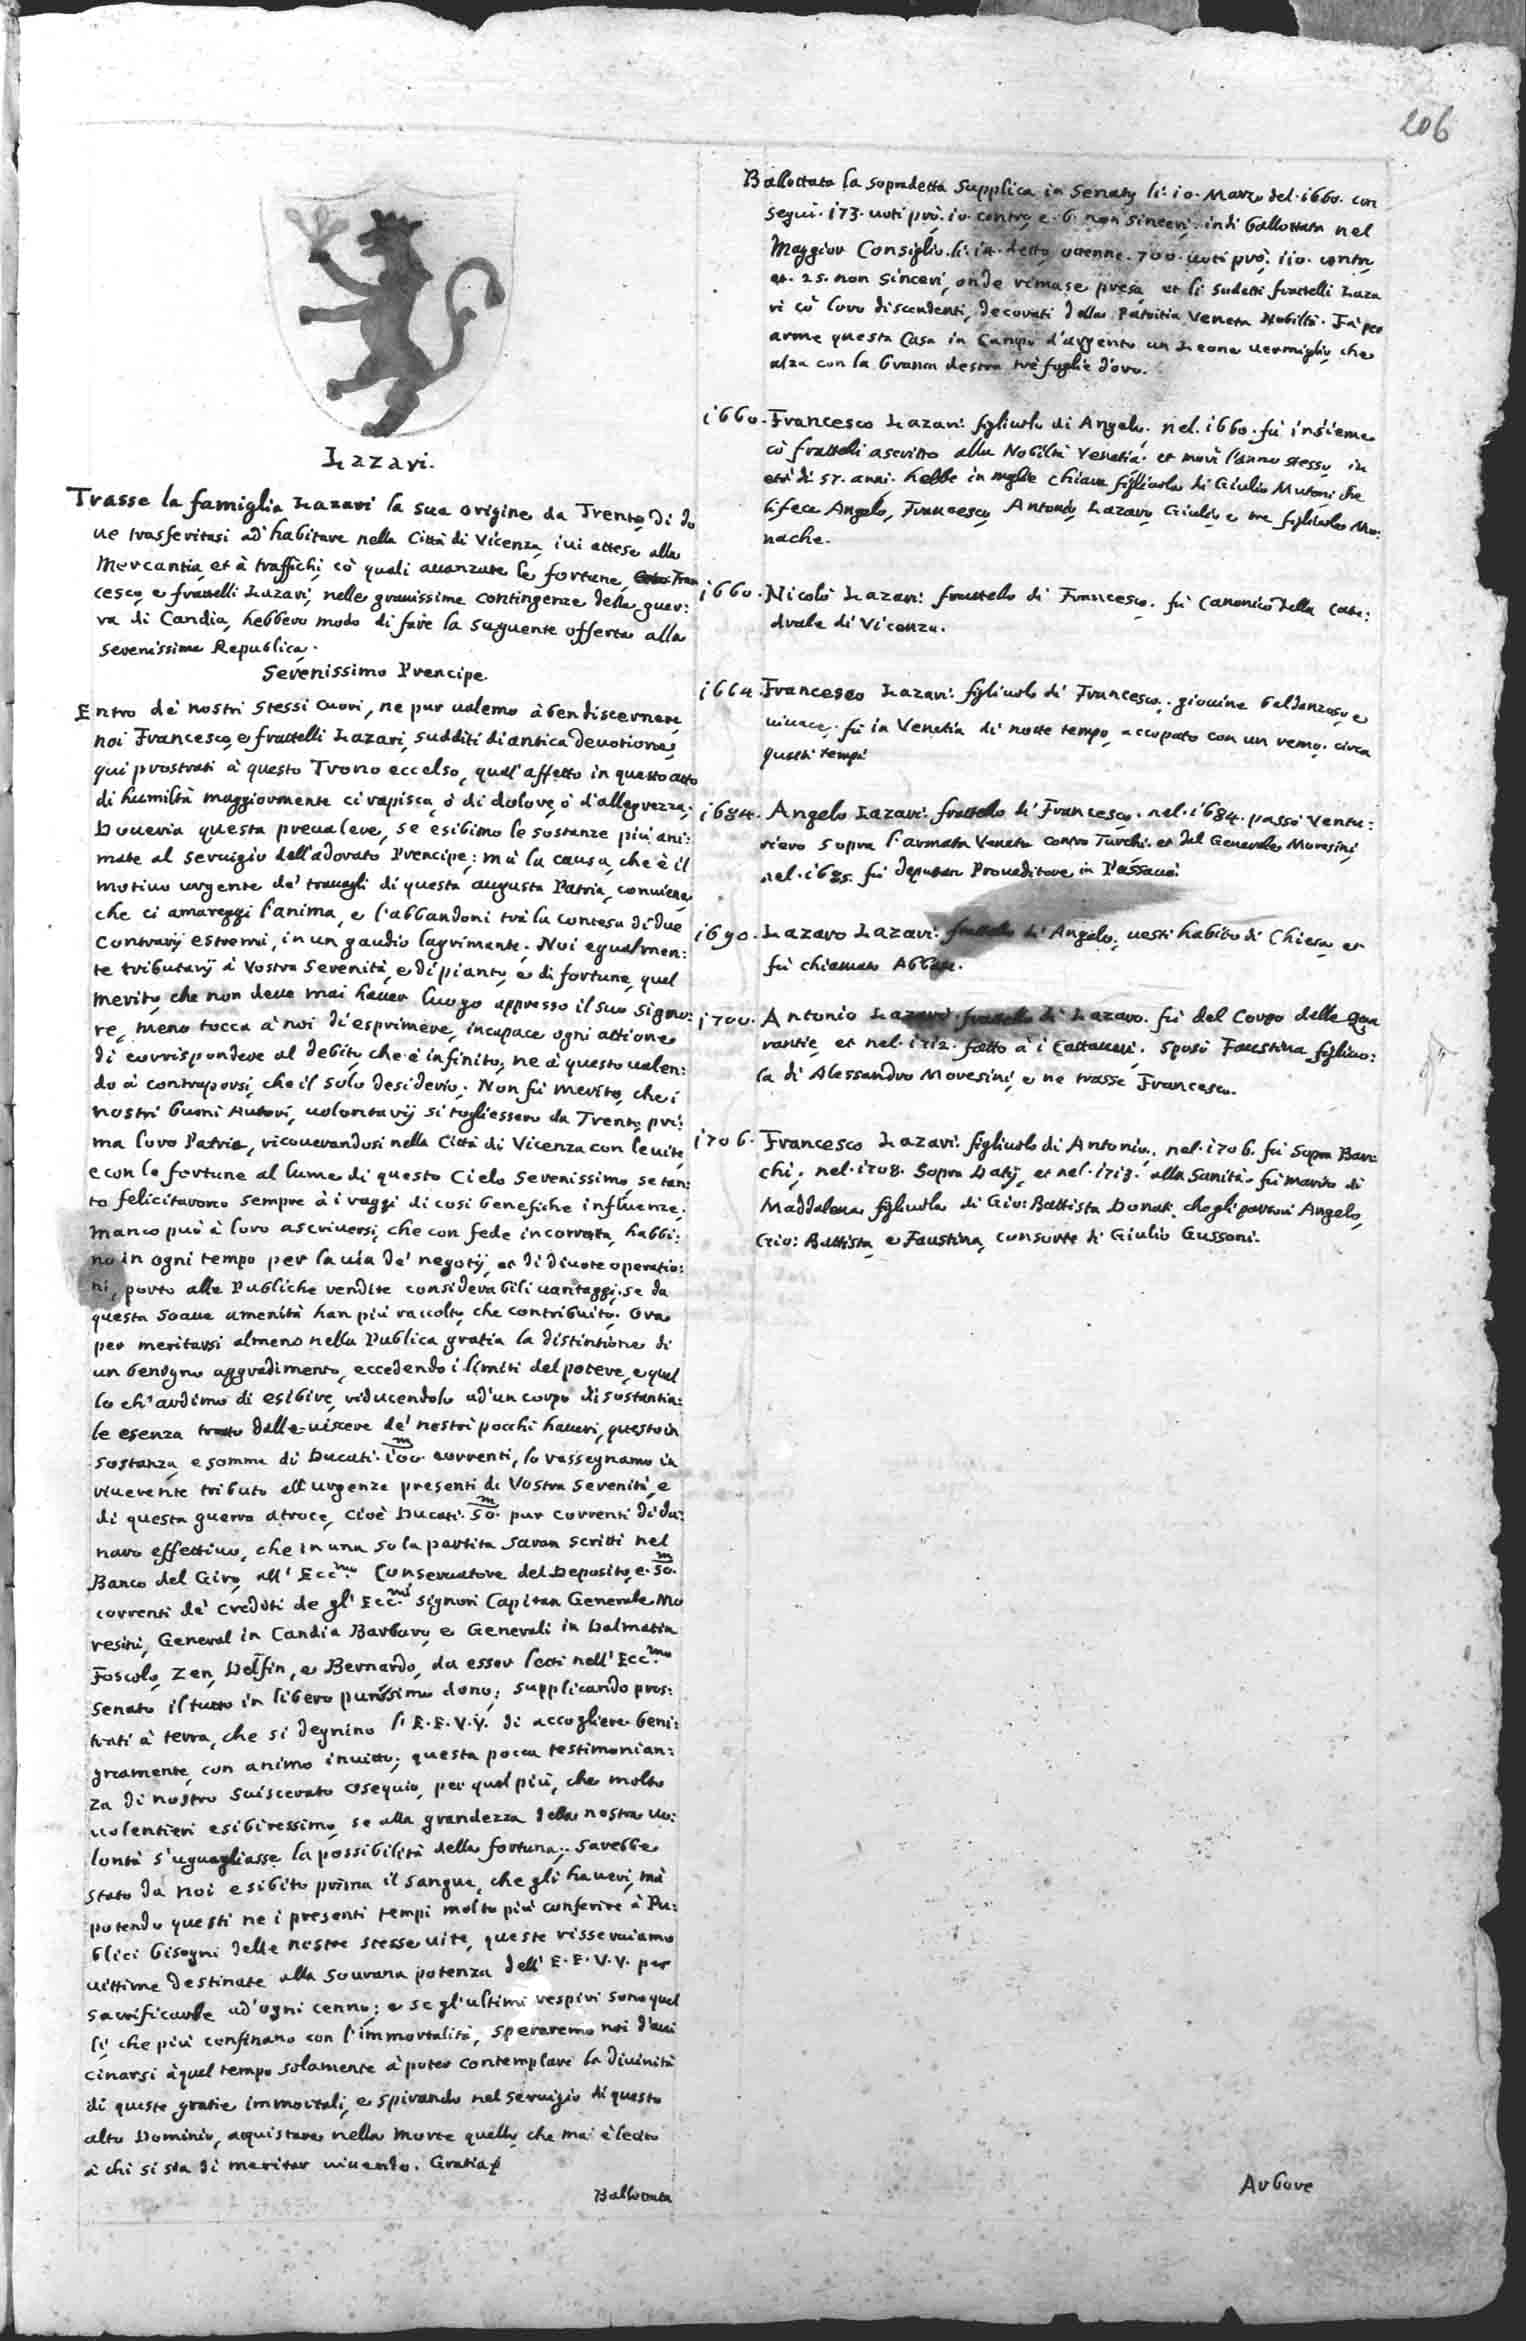 206
Lazari.
Trasse la famiglia Lazari la sua origine da Trento, di do
ue trasferitasi ad' habitare nella Città di Vicenza, iui attese alla
Mercantia, et à traffichi, cò quali auanzate le fortune, Fran
cesco, e frattelli Lazari, nelle grauissime contingenze della guer:
ra di Candia, hebbero modo di fare la seguente offerta alla
Serenissima Republica.
Serenissimo Prencipe.
Entro de' nostri stessi cuori, ne pur ualemo à ben discernere,
noi Francesco, e frattelli Lazari, sudditi di antica deuotione,
qui prostrati à questo Trono eccelso, qual' affetto in questo atto
di humiltà maggiormente ci rapisca, ò di dolore, ò d'allegrezza.
Doueria questa preualere, se esibimo le sostanze più ani:
mate al seruigio dell'adorato Prencipe; mà la causa, che è il
motiuo urgente de' trauagli di questa augusta Patria, conuiene,
che ci amareggi l'anima, e l'abbandoni trà la contesa di due
contrarij estremi, in un gaudio lagrimante. Noi egualmen:
te tributarij à Vostra Serenità, e di pianto, e di fortune, quel
merito, che non deue mai hauer luogo appresso il suo Signo:
re, meno tocca à noi di esprimere, incapace ogni attione
di corrispondere al debito, che è infinito, ne à questo ualen:
do à contraporsi, che il solo desiderio. Non fù merito, che i
nostri buoni Autori, uolontarij si togliessero da Trento, pri:
ma loro Patria, ricouerandosi nella Città di Vicenza con le uite,
e con le fortune al lume di questo Cielo Serenissimo, se tan:
to felicitarono sempre à i raggi di così benefiche influenze;
manco può à loro ascriuersi, che con fede incorrotta, habbi:
no in ogni tempo per la uia de' negotij, et di diuote operatio:
ni, porto alle Publiche rendite considerabili uantaggi, se da
questa soaue amenità han più raccolto, che contribuito. Ora
per meritarsi almeno nella Publica gratia la distintione di
un benigno aggradimento, eccedendo i limiti del potere, e quel
lo ch'ardimo di esibire, riducendolo ad'un corpo di sostantia:
le esenza tratto dalle uiscere de' nostri pocchi haueri, questo in
sostanza, e somma di Ducati. 100 m correnti, lo rassegnamo in
riuerente tributo all'urgenze presenti di Vostra Serenità, e
di questa guerra atroce, cioè Ducati. 50 m pur correnti di da:
naro effettiuo, che in una sola partita saran scritti nel
Banco del Giro, all' Eccmo. Conseruatore del Deposito, e. 50 m.
correnti de' crediti de gl' Eccmi. Signori Capitan Generale Mo
resini, General in Candia Barbaro, e Generali in Dalmatia
Foscolo, Zen, Delfin, e Bernardo, da esser letti nell' Eccmo.
Senato il tutto in libero purissimo dono; supplicando pros:
trati à terra, che si degnino l' E. E. V. V. di accogliere beni:
gnamente, con animo inuitto, questa pocca testimonian:
za di nostro suiscerato osequio, per quel più, che molto
uolentieri esibiressimo, se alla grandezza della nostra uo:
lontà s'uguagliasse la possibilità della fortuna. Sarebbe
stato da noi esibito prima il sangue, che gli haueri, mà
potendo questi ne i presenti tempi molto più conferire à Pu:
blici bisogni delle nostre stesse uite, queste risseruiamo
uittime destinate alla sourana potenza dell' E. E. V. V. per
sacrificarle ad'ogni cenno; e se gl'ultimi respiri sono quel
li, che più confinano con l'immortalità, speraremo noi d'aui
cinarsi à quel tempo solamente à poter contemplare la diuinità
di queste gratie immortali, e spirando nel seruigio di questo
alto Dominio, acquistare nella morte quello, che mai è lecito
à chi si sia di meritar uiuendo. Gratia
Ballottata
Ballottata la sopradetta supplica in Senato li. 10. Marzo del. 1660. con
seguì. 173. uoti prò. 10. contro, e. 6. non sinceri. indi ballottata nel
Maggior Consiglio. li. 14. detto ottenne. 700. uoti prò. 110. contro,
et. 25. non sinceri, onde rimase presa, et li sudetti frattelli Laza
ri cò loro discendenti, decorati della Patritia Veneta Nobiltà. Fà per
arme questa Casa in Campo d'argento un Leone uermiglio, che
alza con la branca destra trè foglie d'oro.
1660. Francesco Lazari. figliuolo di Angelo. nel. 1660. fù insieme
cò frattelli ascritto alla Nobiltà Venetia. et morì l'anno stesso, in
età di 57. anni. hebbe in moglie Chiara figliuola di Giulio Mutoni che
li fece Angelo, Francesco, Antonio, Lazaro, Giulio, e tre figliuole Mo:
nache.
1660. Nicolò Lazari. frattello di Francesco. fù Canonico della Cate:
drale di Vicenza.
1664. Francesco Lazari. figliuolo di Francesco. giouine baldanzoso, e
uiuace. fù in Venetia di notte tempo, accopato con un remo. circa
questi tempi
1684. Angelo Lazari. frattello di Francesco. nel. 1684. passò Ventu:
riero sopra l'armata Veneta contro Turchi. et dal Generale Moresini,
nel. 1685. fù deputato Proueditore in Passauà
1690. Lazaro Lazari. frattello di Angelo. uestì habito di Chiesa, et
fù chiamato Abbate.
1700. Antonio Lazari. frattello di Lazaro. fù del Corpo delle Qua
rantie, et nel. 1712. fatto à i Cattaueri. Sposò Faustina figliuo:
la di Alessandro Moresini, e ne trasse Francesco.
1706. Francesco Lazari. figliuolo di Antonio. nel. 1706. fù Sopra Ban:
chi, nel. 1708. Sopra Datij, et nel. 1713. alla Sanità. fù marito di
Maddalena figliuola di Gio: Battista Donati, che gli partorì Angelo,
Gio: Battista, e Faustina, consorte di Giulio Gussoni.
Arbore